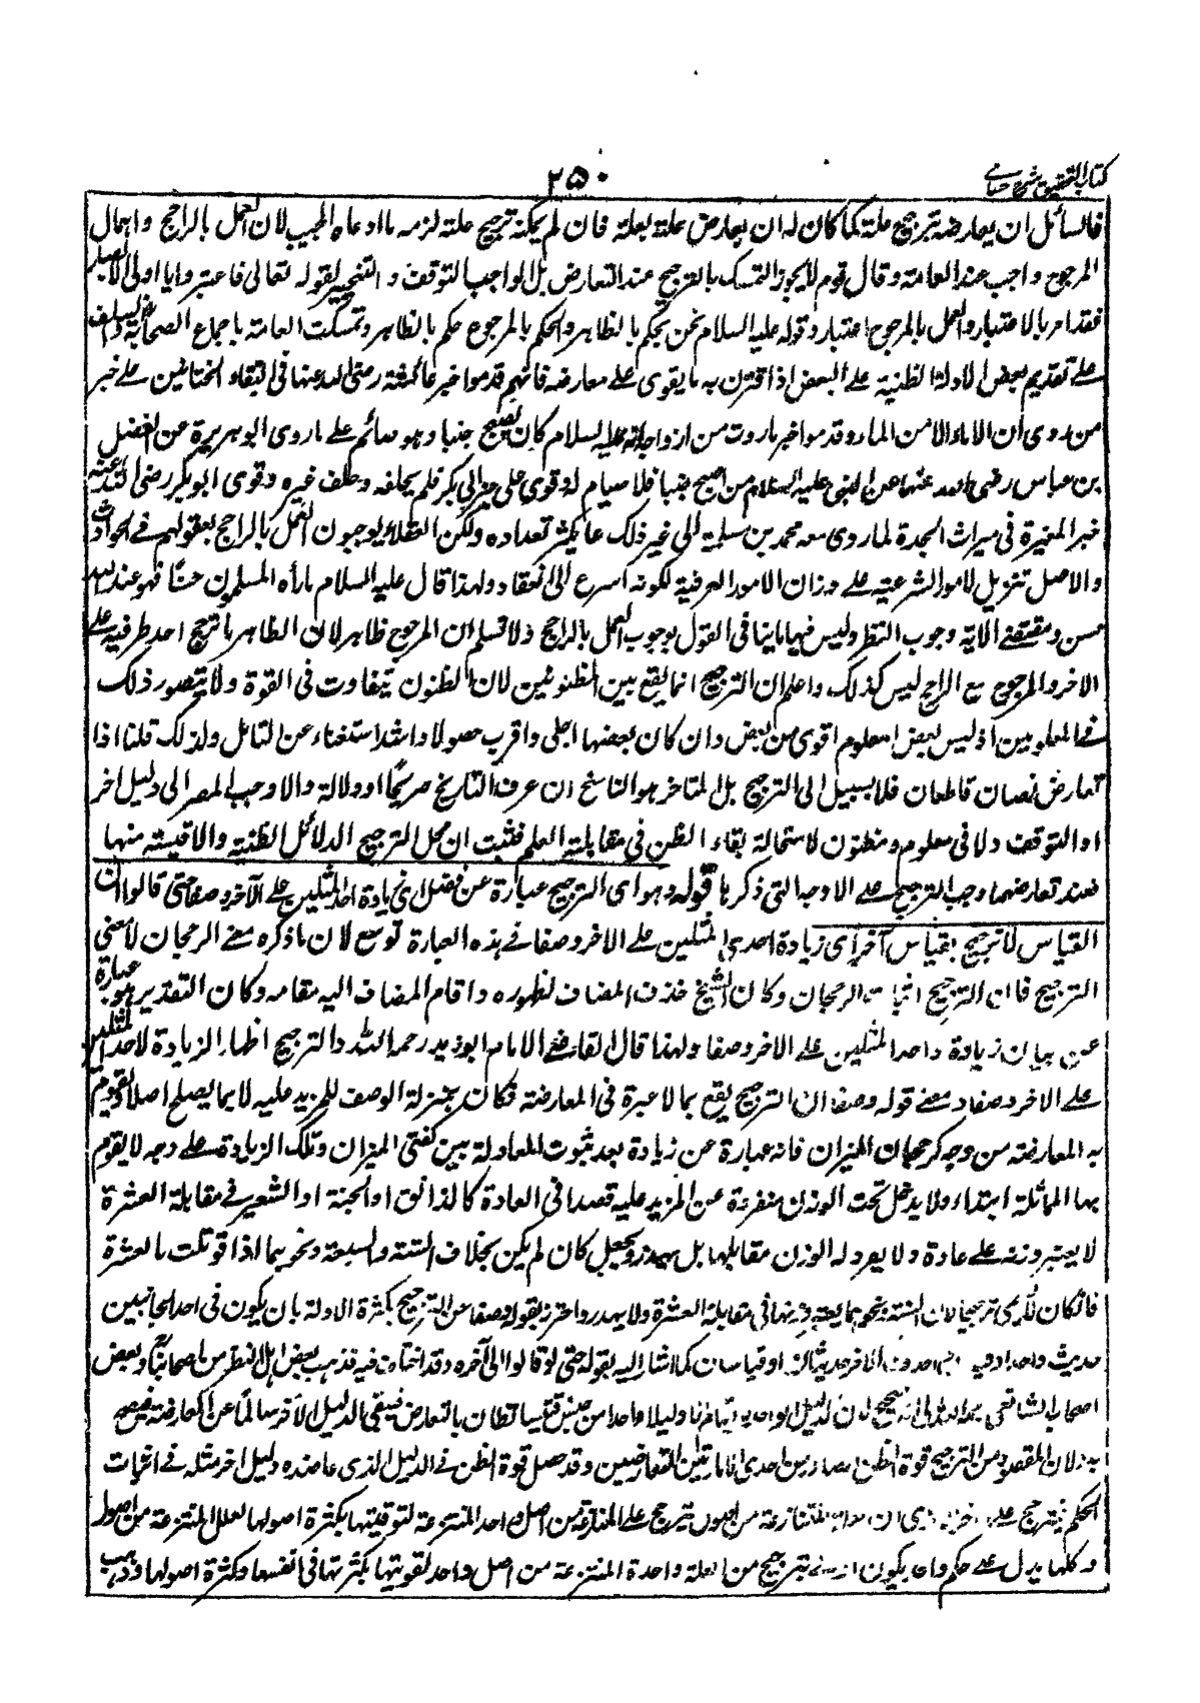 كتاب التحقيق شرح حسامى
٢٥٠
فللسائل ان يعارضه بترجيح علته كما كان له ان يعارض علته بعلته فان لم يمكنه ترجيح علته لزمه ما ادعاه المجيب لان العمل بالراجح واهمال
المرجوح واجب عند العامة وقال قوم لا يجوز التمسك بالترجيح عند التعارض بل الواجب التوقف او التخيير لقوله تعالى فاعتبروا يا اولى الابصار
فقد امر بالاعتبار والعمل بالمرجوح اعتبار وقوله عليه السلام نحن نحكم بالظاهر والحكم بالمرجوح حكم بالظاهر وتمسكت العامة باجماع الصحابة والسلف
على تقديم بعض الادلة الظنية على البعض اذا اقترن به ما يقوى على معارضه فانهم قدموا خبر عائشة رضى الله عنها فى التقاء الختانين على خبر
من روى ان الماء الا من الماء وقدموا خبر ما روت من ازواجه انه عليه السلام كان يصبح جنبا وهو صائم على ما روى ابو هريرة عن الفضل
بن عباس رضى الله عنهما عن النبى عليه السلام من اصبح جنبا فلا صيام له وقوى على خبر ابى بكر فلم يحلفه وحلف غيره وقوى ابو بكر رضى الله عنه
خبر المغيرة فى ميراث الجدة لما روى معه محمد بن سلمة الى غير ذلك مما يكثر تعداده ولكن العقلاء يوجبون العمل بالراجح بعقولهم فى الحوادث
والاصل تنزيل الامور الشرعية على وزان الامور العرفية لكونه اسرع الى الانقياد ولهذا قال عليه السلام ما رآه المسلمون حسنا فهو عند الله
حسن ومقتضى الآية وجوب النظر وليس فيها ما ينافى القول بوجوب العمل بالراجح ولا نسلم ان المرجوح ظاهر لان الظاهر ما ترجح احد طرفيه على
الاخر والمرجوح مع الراجح ليس كذلك واعلم ان الترجيح انما يقع بين المظنونين لان الظنون تتفاوت فى القوة ولا يتصور ذلك
فى المعلومين اذ ليس بعض المعلوم اقوى من بعض وان كان بعضها اجلى واقرب حصولا واشد استغناء عن التامل ولذلك قلنا اذا
تعارض نصان قاطعان فلا سبيل الى الترجيح بل المتاخر هو الناسخ ان عرف التاريخ صريحا او دلالة والا وجب المصير الى دليل اخر
او التوقف ولا فى معلوم ومظنون لاستحالة بقاء الظن فى مقابلة العلم فثبت ان محل الترجيح الدلائل الظنية والاقيسة منها
فعند تعارضها وجب الترجيح على الاوجه التى ذكرها قوله وهو اى الترجيح عبارة عن فضل اى زيادة احد المثلين على الآخر وصفا حتى قالوا ان
القياس لا ترجح بقياس آخر اى زيادة احدى المثلين على الاخر وصفا فى هذه العبارة توسع لان ما ذكره معنى الرجحان لا معنى
الترجيح فان الترجيح اثبات الرجحان وكان الشيخ حذف المضاف لظهوره واقام المضاف اليه مقامه وكان التقدير هو عبارة
عن بيان زيادة واحد المثلين على الاخر وصفا ولهذا قال القاضى الامام ابو زيد رحمه الله والترجيح اظهار الزيادة لاحد المثلين
على الاخر وصفا ومعنى قوله وصفا ان الترجيح يقع بما لا عبرة فى المعارضة فكان بمنزلة الوصف للمزيد عليه لا بما يصلح اصلا وتقوم
به المعارضة من وجه كرجحان الميزان فانه عبارة عن زيادة بعد ثبوت المعادلة بين كفتى الميزان وتلك الزيادة على وجه لا يقوم
بها المماثلة ابتداء ولا يدخل تحت الوزن منفردة عن المزيد عليه قصدا فى العادة كالدانق او الحبة او الشعير فى مقابلة العشرة
لا يعتبر وزنه على عادة ولا يعرد له الوزن مقابلها بل يهدر ويجعل كان لم يكن بخلاف الستة والسبعة ونحوهما اذا قوبلت بالعشرة
فانه كان لا يسمى ترجيحا لان الستة ونحوها يعتبر وزنها فى مقابلة العشرة ولا يهدر واحترز بقوله وصفا عن الترجيح بكثرة الادلة بان يكون فى احد الجانبين
حديث واحد او فى الاخر حديثان او قياسان كما اشار اليه بقوله حتى لو قالوا الى آخره وقد اختلف فيه فذهب بعض اهل النظر من اصحابنا وبعض
اصحاب الشافعى رحمه الله الى انه صحيح لان الدليل الواحد لا يقاوم الا دليلا واحدا من جنسه فيتساقطان بالتعارض فيبقى الدليل الآخر سالما عن المعارضة فيصح
به ولان المقصود من الترجيح قوة الظن الصادر من احدى الامارتين المتعارضتين وقد حصل قوة الظن فى الدليل الذى عاضده دليل اخر مثله فى اثبات
الحكم فيترجح على الاخر المنتزعة من اصول ترجح على المنتزعة من اصل واحد لتقويتها بكثرة اصولها العلل المنتزعة من اصول
وكلها يدل على حكم واحد يكون اولى بترجيح من العلة واحدة المنتزعة من اصل واحد لتقويتها بكثرتها فى انفسها وكثرة اصولها وذهب